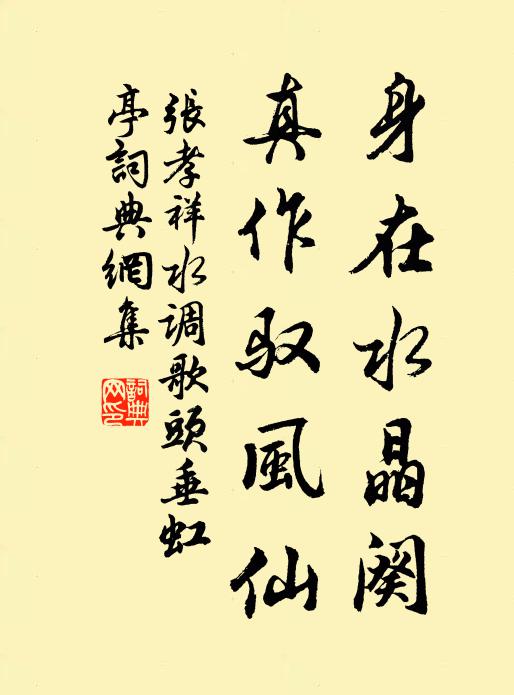 身在水晶闕
真作驭風仙
張孝祥水调歌頭垂虹
亭詞典網集
詞典网印